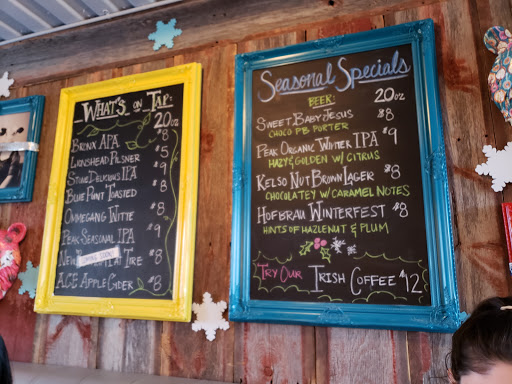 What's on Tap:
20oz
Bronx APA $8
Lionshead Pilsner $5
Stone Delicious IPA $9
Blue Point Toasted $8
Ommegang Witte $8
Peak Seasonal IPA $9
New at Tire $8
Coming Soon!
Ace Apple Cider $8
Seasonal Specials
Beer: 20oz
Sweet Baby Jesus $8
Choco PB Porter
Peak Organic Winter IPA $9
Hazy & Golden w/ Citrus
Kelso Nut Brown Lager $8
Chocolatey w/ Caramel Notes
Hofbrau Winterfest $8
Hints of Hazlenut & Plum
Try Our Irish Coffee $12